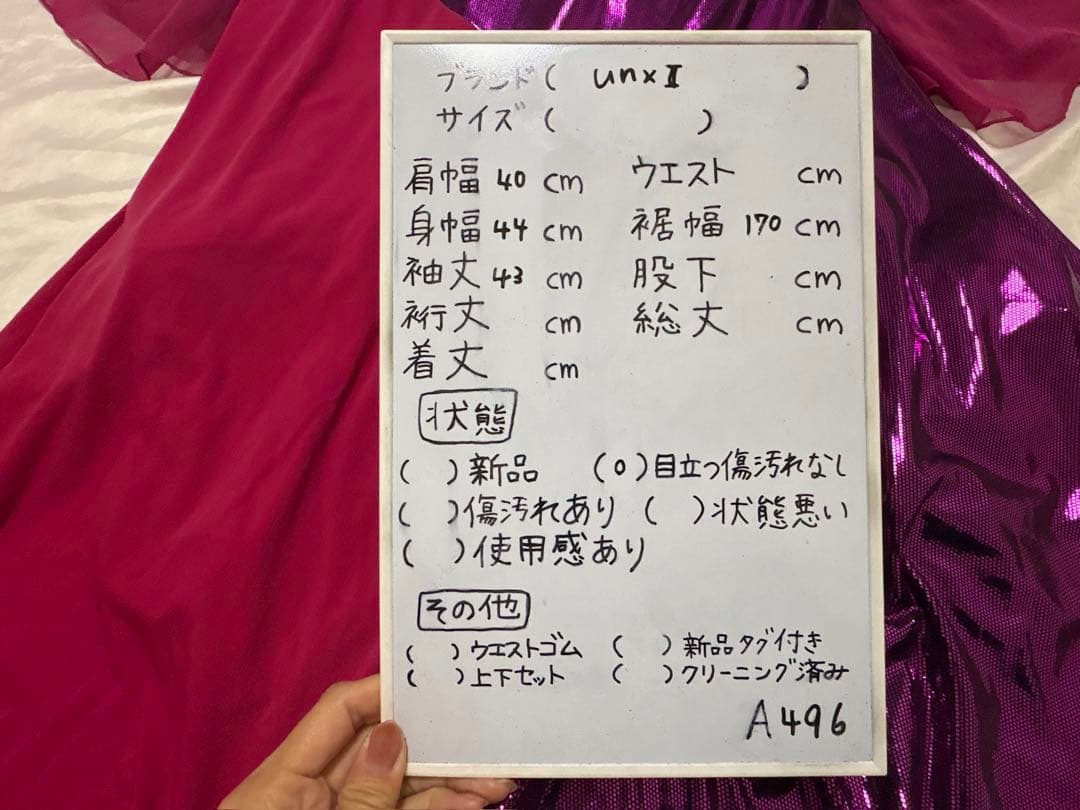 ブランド( unxⅡ )
サイズ( )
肩幅 40 cm ウエスト cm
身幅 44 cm 裾幅 170 cm
袖丈 43 cm 股下 cm
裄丈 cm 総丈 cm
着丈 cm
状態
( )新品 (0)目立つ傷汚れなし
( )傷汚れあり ( )状態悪い
( )使用感あり
その他
( )ウエストゴム ( )新品タグ付き
( )上下セット ( )クリーニング済み
A496